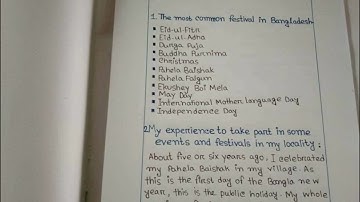 1. The most common festival in Bangladesh
• Eid-ul-Fitri
• Eid-ul-Adha
• Durga Puja
• Buddha Purnima
• Christmas
• Pahela Baishak
• Pahela Falgun
• Ekushey Boi Mela
• May Day
• International Mother Language Day
• Independence Day
2. My experience to take part in some
events and festivals in my locality:
About five or six years ago, I celebrated
my Pahela Baishak in my village. As
this is the first day of the Bangla new
year, this is the public holiday. My whole